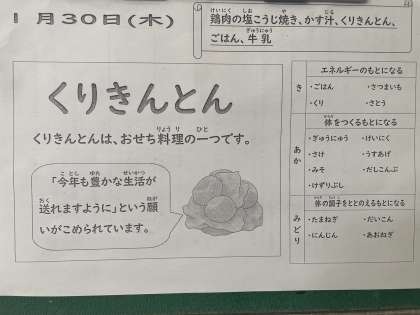 1月30日(木)
鶏肉の塩こうじ焼き、かす汁、くりきんとん、
ごはん、牛乳
くりきんとん
くりきんとんは、おせち料理の一つです。
「今年も豊かな生活が
送れますように」という願
いがこめられています。
き
エネルギーのもとになる
・ごはん ・さつまいも
・くり ・さとう
あか
体をつくるもとになる
・ぎゅうにゅう ・けいにく
・さけ ・うすあげ
・みそ ・だしこんぶ
・けずりぶし
みどり
体の調子をととのえるもとになる
・たまねぎ ・だいこん
・にんじん ・あおねぎ